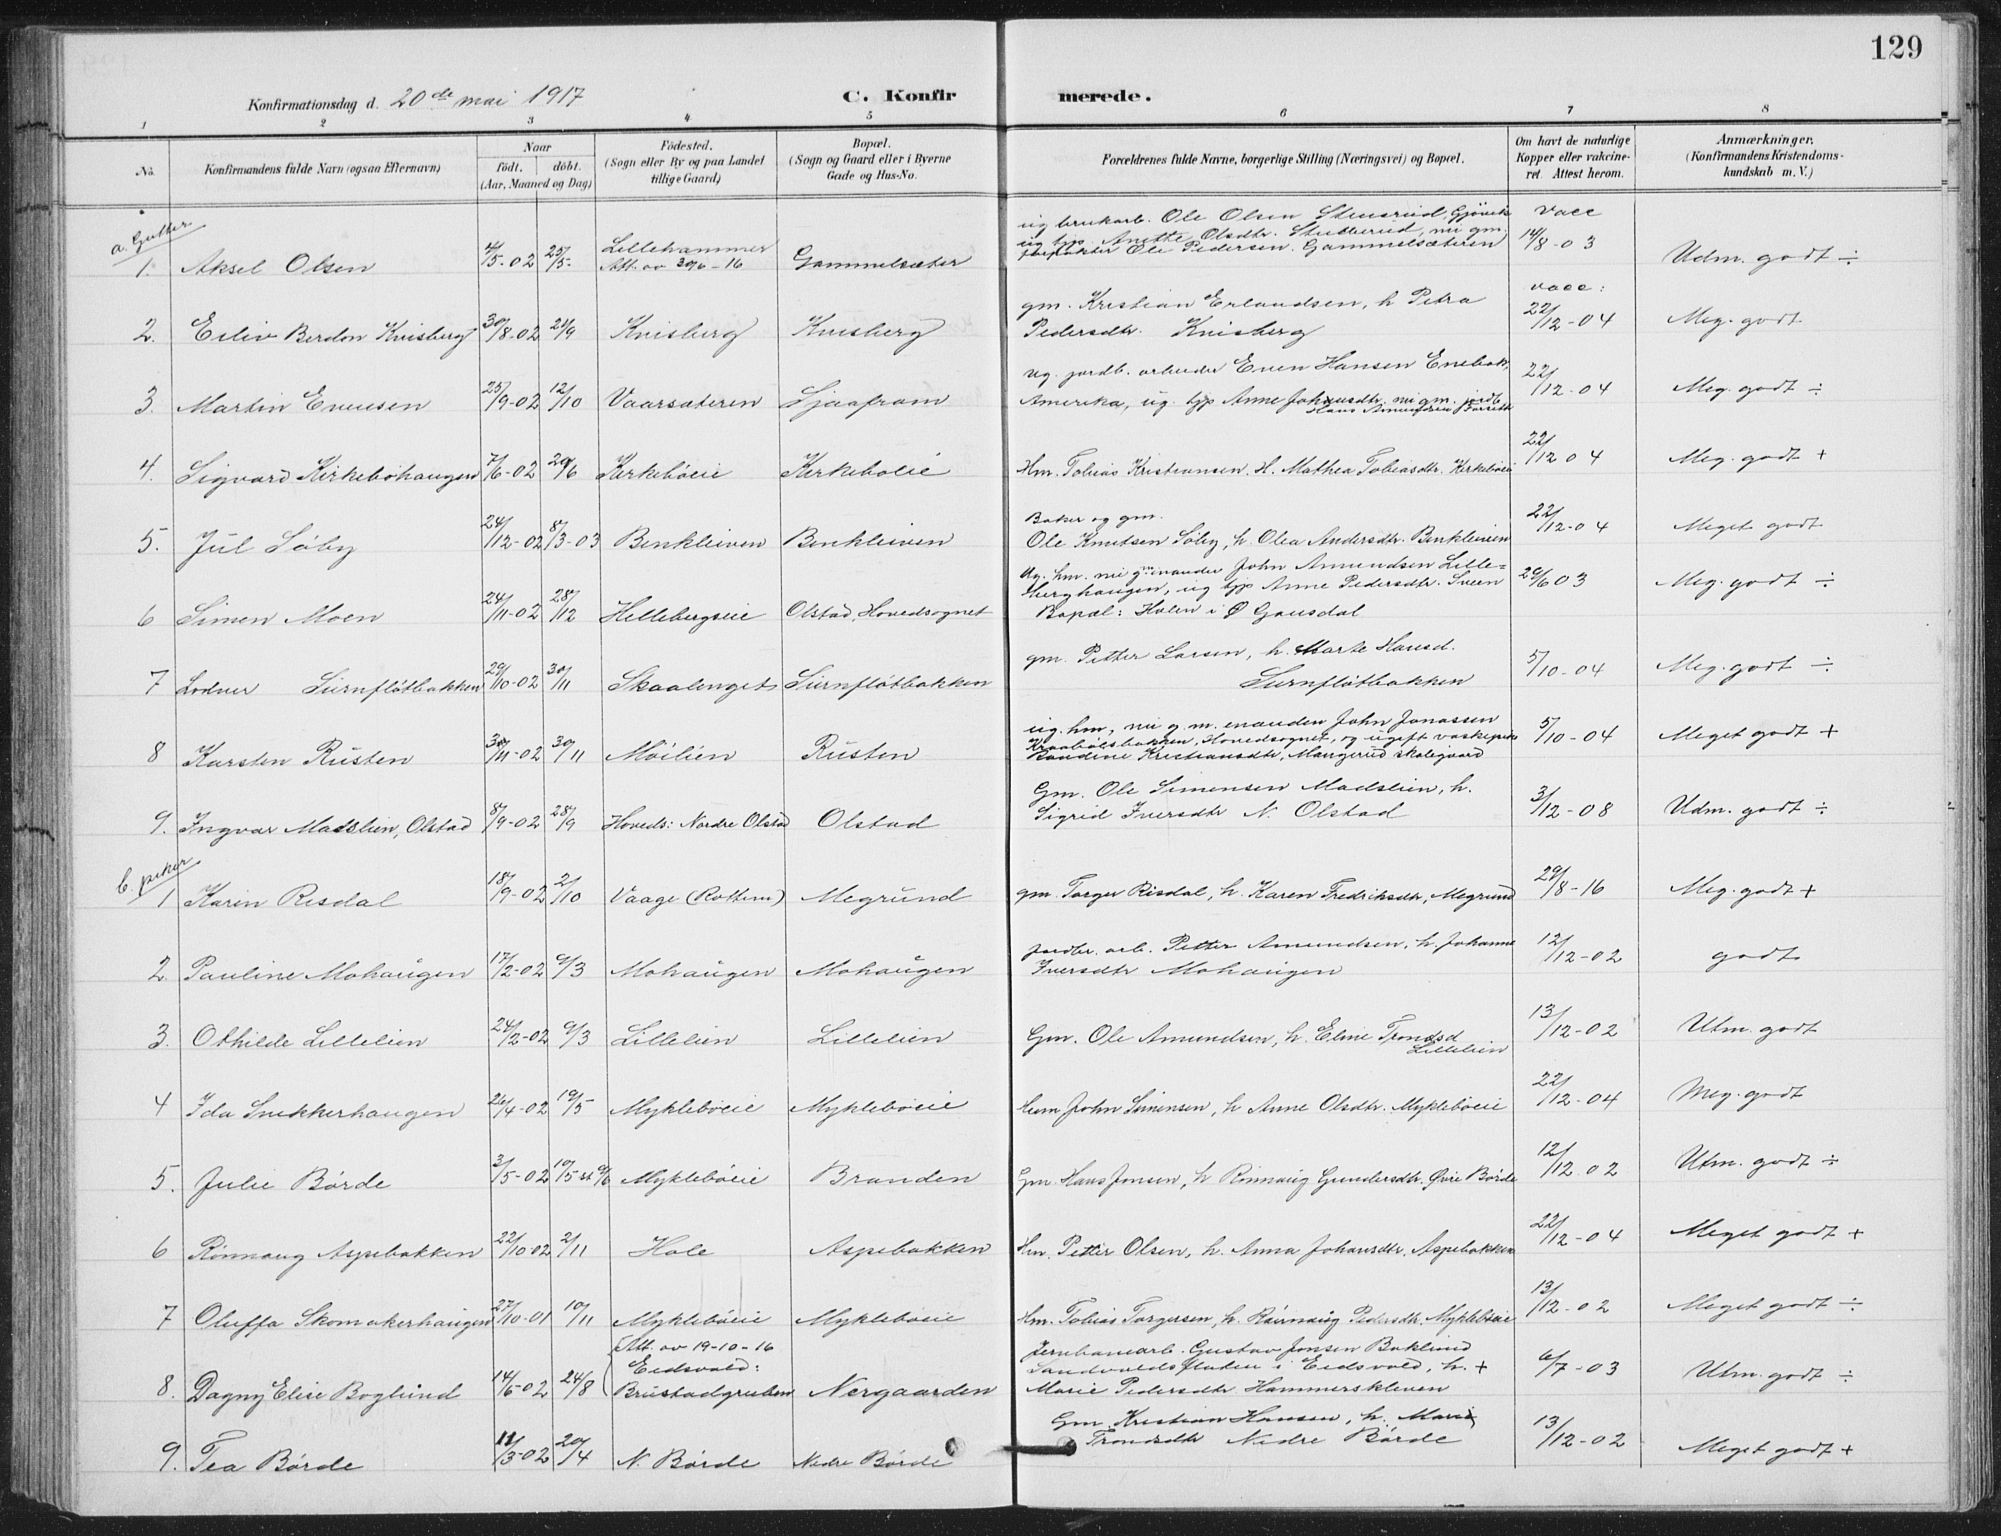 129
Konfirmationsdag d. 20de mai 1917 C. Konfirmerede.
1 2 3 4 5 6 7 8
No. Konfirmandens fulde Navn (ogsaa Efternavn) Naar født. døbt. (Aar, Maaned og Dag) Fødested. (Sogn eller By og paa Landet tillige Gaard) Bopæl. (Sogn og Gaard eller i Byerne Gade og Hus-No. Forældrenes fulde Navne, borgerlige Stilling (Næringsvei) og Bopæl. Om havt de naturlige Kopper eller vakcineret. Attest herom. Anmærkninger. (Konfirmandens Kristendomskundskab m. V.)
a. Gutter
1. Aksel Olsen 4/5-02 25/5- Lillehammer Att. av 30/6-16 Gammelsæter ug brukarb. Ole Olsen Stensrud, Gjøvik
ug tjp. Anette Olsdtr. Stubberud, nu gm.
forpakter Ole Pedersen. Gammelsæteren vacc 14/8-03 Udm. godt ÷
2. Eiliv Berdon Knisberg 30/8-02 21/9 Knisberg Knisberg gm. Kristian Erlandsen, h Petra
Pedersdtr. Knisberg vacc: 22/12-04 Meg. godt
3. Martin Evensen 25/9-02 12/10 Vaarsæteren Sjaafram ug. jordb. arbeider Even Hansen Enebak,
Amerika, ug. tjp Anne Johnsdtr. nu gm. jordb.
Hans Amundsen 22/12-04 Meg. godt ÷
4. Sigvard Kirkebøhaugen 7/6-02 29/6 Kirkebøeie Kirkebøeie Hm. Tobias Kristiansen. H. Mathea Tobiasdtr. Kirkebøeie 22/12 04 Meg. godt +
5. Jul Søby 24/12-02 8/3-03 Benkleiven Benkleiven Baker og gm.
Ole Knutsen Søby, h. Olea Andersdtr. Benkleiven 22/12-04 Meget godt
6 Simen Moen 24/11-02 28/12 Hellebergseie Olstad, Hovedsognet Ug. hm. nu gm. John Amundsen Lille-
berghaugen, ug tjp Anne Pedersdtr. Sveen
Bopæl: Holen i Ø Gausdal 29/6 03 Meg. godt ÷
7 Lodver Surnfløtbakken 29/10-02 30/11 Skaalenget Surnfløtbakken gm. Petter Larsen, h. Marte Hansd.
Surnfløtbakken 5/10-04 Meg. godt ÷
8 Karsten Rusten 30/11-02 30/11 Moilien Rusten ug. hm, nu g. m. enanden John Jonassen
Kraabølsbakken, Hovedsognet, og ugift vaskepike
Randine Kristiansdtr, Mangerud skolegaard 5/10-04 Meget godt +
9. Ingvar Madslien, Olstad 8/9-02 28/9 Hoveds: Nordre Olstad Olstad Gm. Ole Simensen Madslien, h.
Sigrid Iversdtr N. Olstad 3/12-08 Udm. godt ÷
b. piker
1 Karin Risdal 18/9-02 2/10 Vaage (Rottem) Megrund gm. Torger Risdal, h. Karen Fredriksdtr, Megrund 29/8-16 Meg. godt +
2. Pauline Mohaugen 17/2-02 9/3 Mohaugen Mohaugen jordbr. arb. Petter Amundsen, h. Johanne
Iversdtr Mohaugen 12/12-02 godt
3. Othilde Lillelien 24/2-02 9/3 Lillelien Lillelien Gm. Ole Amundsen, h. Eline Trondsd
Lillelien 13/12-02 Utm. godt
4 Ida Snekkerhaugen 26/4-02 19/5 Myklebøeie Myklebøeie Husm John Simensen, h Anne Olsdtr. Myklebøeie 22/12-04 Meg. godt
5. Julie Børde 3/5-02 10/5 st 9/6 Myklebøeie Branden Gm. Hans Jonsen, h Rønnaug Gundersdtr. Øvre Børde 12/12 02 Utm. godt ÷
6 Rønnaug Aspebakken 22/10-02 2/11 Hole Aspebakken Hm. Petter Olsen, h. Anna Johansdtr. Aspebakken 22/12-04 Meget godt +
7 Oluffa Skomakerhaugen 27/10-01 10/11 Myklebøeie Myklebøeie Hm. Tobias Torgersen, h. Rønnaug Pedersdtr. Myklebøeie 13/12-02 Meget godt ÷
8. Dagny Elise Boglund 14/6-02 24/8 Att. av 19-10-16
Eidsvold:
Brustadgruben Nergaarden Jernbanearb. Gustav Jonsen Baklund
i Eidsvold, h. +
Marie Pedersdtr Hammerskleven 6/7-03 Utm. godt ÷
9. Tea Børde 11/3-02 20/4 N. Børde Nedre Børde Gm. Kristian Hansen, h. Mari
Trondsdtr Nedre Børde 13/12-02 Meget godt +